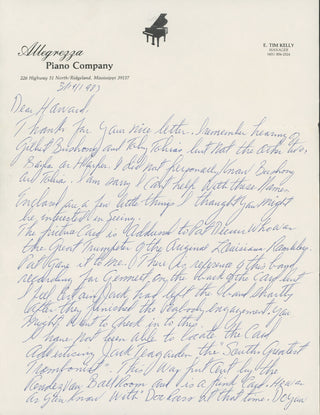 Allegrezza
Piano Company
E. TIM KELLY
MANAGER
226 Highway 51 North/Ridgeland, Mississippi 39157
3/14/1983
Dear Howard,
Thanks for your nice letter. I remember hearing of
Gilbert and but not the other two,
or I did not personally know
and I am sorry I can't help with these names.
Enclosed are a few little things I thought you might
be interested in seeing.
The card is addressed to Pat who was
the great trumpeter of the original Louisiana Ramblers.
Pat gave it to me. There is reference of this band
recording for Gennett, on the back of the card and
I feel Art and Jack had left the band shortly
after they finished the Peabody engagement. You
might want to check in to this.
I have not been able to locate the card
advertising Jack Teagarden the "South's Greatest
Trombonist". This was put out by the
Rendezvous Ballroom and is a post card. He was
as you know with Doc Ross at that time. Began